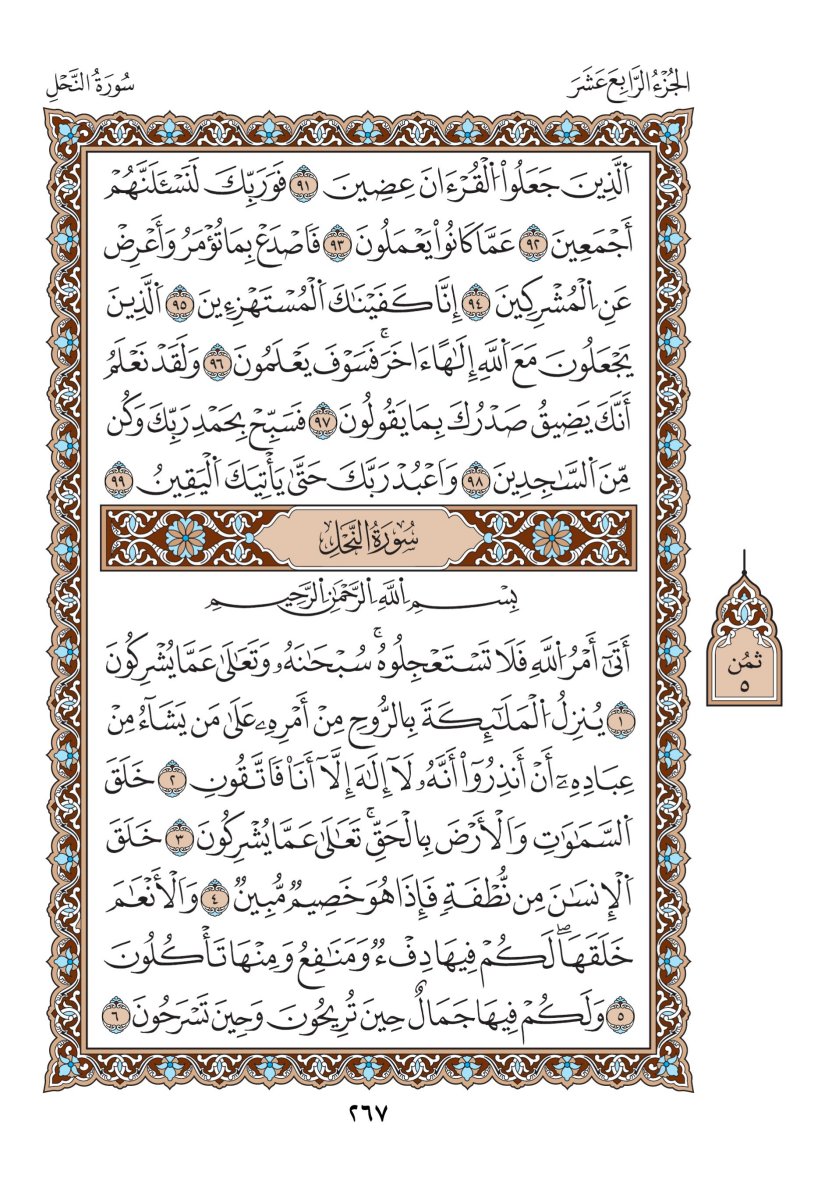 الجُزْءُ الرَّابِعَ عَشَرَ
سُورَةُ النَّحْلِ
اَلَّذِينَ جَعَلُواْ اُلْقُرْءَانَ عِضِينَ ٩١ فَوَرَبِّكَ لَنَسْـَٔلَنَّهُمْ
أَجْمَعِينَ ٩٢ عَمَّا كَانُواْ يَعْمَلُونَ ٩٣ فَاصْدَعْ بِمَا تُؤْمَرُ وَأَعْرِضْ
عَنِ اِلْمُشْرِكِينَ ٩٤ إِنَّا كَفَيْنَٰكَ اَلْمُسْتَهْزِءِينَ ٩٥ اَلَّذِينَ
يَجْعَلُونَ مَعَ اَللَّهِ إِلَٰهًا ءَاخَرَۚ فَسَوْفَ يَعْلَمُونَ ٩٦ وَلَقَدْ نَعْلَمُ
أَنَّكَ يَضِيقُ صَدْرُكَ بِمَا يَقُولُونَ ٩٧ فَسَبِّحْ بِحَمْدِ رَبِّكَ وَكُن
مِّنَ اَلسَّٰجِدِينَ ٩٨ وَاَعْبُدْ رَبَّكَ حَتَّىٰ يَأْتِيَكَ اَلْيَقِينُ ٩٩
سُورَةُ النَّحْلِ
بِسْمِ اِللَّهِ اِلرَّحْمَٰنِ اِلرَّحِيمِ
أَتَىٰٓ أَمْرُ اُللَّهِ فَلَا تَسْتَعْجِلُوهُۚ سُبْحَٰنَهُۥ وَتَعَٰلَىٰ عَمَّا يُشْرِكُونَ
١ يُنزِلُ اُلْمَلَٰٓئِكَةَ بِالرُّوحِ مِنْ أَمْرِهِۦ عَلَىٰ مَن يَشَآءُ مِنْ
عِبَادِهِۦٓ أَنْ أَنذِرُوٓاْ أَنَّهُۥ لَآ إِلَٰهَ إِلَّآ أَنَا۠ فَاتَّقُونِ ٢ خَلَقَ
اَلسَّمَٰوَٰتِ وَاَلْأَرْضَ بِالْحَقِّۚ تَعَٰلَىٰ عَمَّا يُشْرِكُونَ ٣ خَلَقَ
اَلْإِنسَٰنَ مِن نُّطْفَةٍ فَإِذَا هُوَ خَصِيمٌ مُّبِينٌ ٤ وَاَلْأَنْعَٰمَ
خَلَقَهَاۖ لَكُمْ فِيهَا دِفْءٌ وَمَنَٰفِعُ وَمِنْهَا تَأْكُلُونَ
٥ وَلَكُمْ فِيهَا جَمَالٌ حِينَ تُرِيحُونَ وَحِينَ تَسْرَحُونَ ٦
ثمُن
٥
٢٦٧